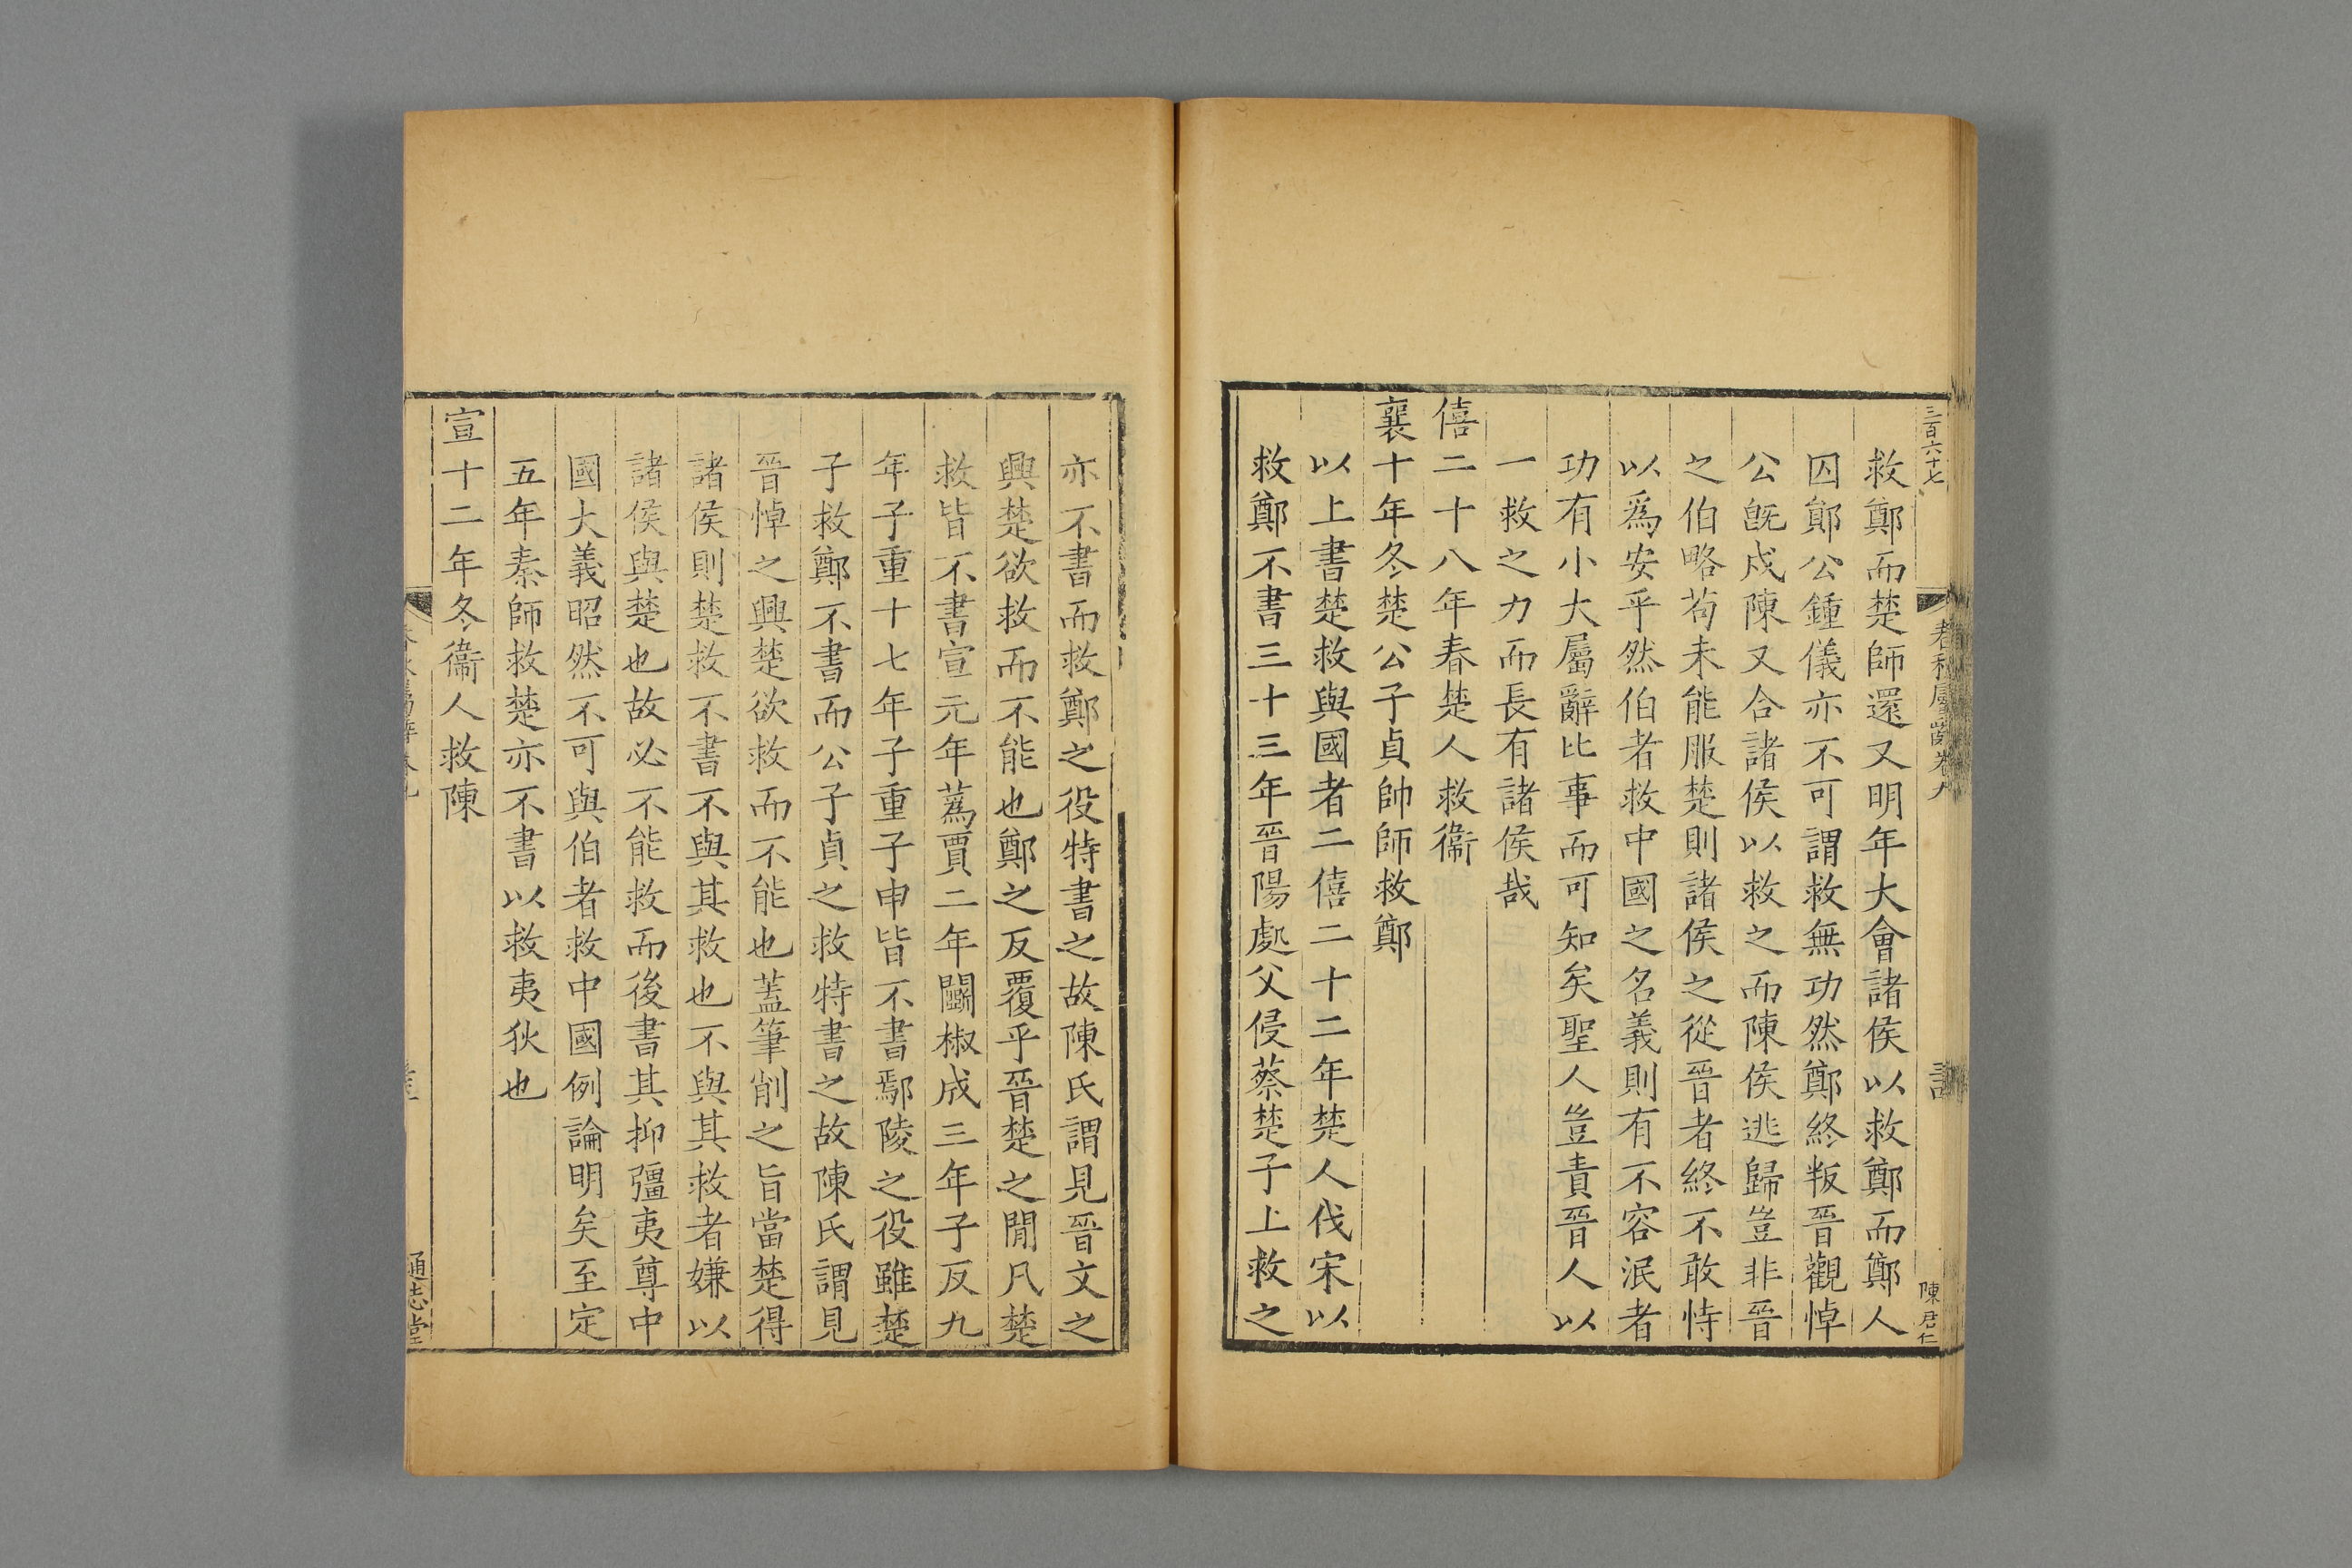 三百六十七
陳君仁
救鄭而楚師還又明年大會諸侯以救鄭而鄭人
囚鄖公鍾儀亦不可謂救無功然鄭終叛晉觀悼
公旣戍陳又合諸侯以救之而陳侯逃歸豈非晉
之伯略苟未能服楚則諸侯之從晉者終不敢恃
以爲安乎然伯者救中國之名義則有不容泯者
功有小大屬辭比事而可知矣聖人豈責晉人以
一救之力而長有諸侯哉
僖二十八年春楚人救衞
襄十年冬楚公子貞帥師救鄭
以上書楚救與國者二僖二十二年楚人伐宋以
救鄭不書三十三年晉陽處父侵蔡楚子上救之
亦不書而救鄭之役特書之故陳氏謂見晉文之
興楚欲救而不能也鄭之反覆乎晉楚之閒凡楚
救皆不書宣元年蒍賈二年鬬椒成三年子反九
年子重十七年子重子申皆不書鄢陵之役雖楚
子救鄭不書而公子貞之救特書之故陳氏謂見
晉悼之興楚欲救而不能也蓋筆削之旨當楚得
諸侯則楚救不書不與其救也不與其救者嫌以
諸侯與楚也故必不能救而後書其抑彊夷尊中
國大義昭然不可與伯者救中國例論明矣至定
五年秦師救楚亦不書以救夷狄也
宣十二年冬衞人救陳
通志堂